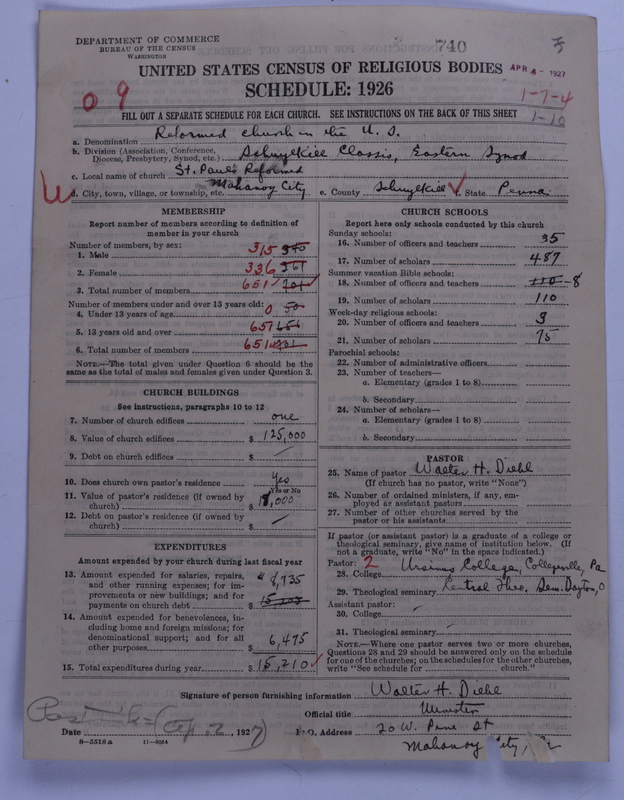 DEPARTMENT OF COMMERCE
BUREAU OF THE CENSUS
WASHINGTON
740
APR 4 - 1927
UNITED STATES CENSUS OF RELIGIOUS BODIES
SCHEDULE: 1926
09
1-7-4
1-10
FILL OUT A SEPARATE SCHEDULE FOR EACH CHURCH. SEE INSTRUCTIONS ON THE BACK OF THIS SHEET
a. Denomination Reformed church in the U. S.
b. Division (Association, Conference, Diocese, Presbytery, Synod, etc.) Schuylkill Classis, Eastern Synod
c. Local name of church St. Paul's Reformed
d. City, town, village, or township, etc. Mahanoy City e. County Schuylkill f. State Penna.
MEMBERSHIP
Report number of members according to definition of
member in your church
Number of members, by sex:
1. Male 315 340
2. Female 336 361
3. Total number of members 651 701
Number of members under and over 13 years old:
4. Under 13 years of age 0 50
5. 13 years old and over 651 651
6. Total number of members 651 701
NOTE.—The total given under Question 6 should be the
same as the total of males and females given under Question 3.
CHURCH BUILDINGS
See instructions, paragraphs 10 to 12
7. Number of church edifices one
8. Value of church edifices $ 125,000
9. Debt on church edifices $
10. Does church own pastor's residence Yes
Yes or No
11. Value of pastor's residence (if owned by
church) $ 8,000
12. Debt on pastor's residence (if owned by
church) $
EXPENDITURES
Amount expended by your church during last fiscal year
13. Amount expended for salaries, repairs,
and other running expenses; for im-
provements or new buildings; and for
payments on church debt $ 8,735
14. Amount expended for benevolences, in-
cluding home and foreign missions; for
denominational support; and for all
other purposes $ 6,475
15. Total expenditures during year $ 15,210
CHURCH SCHOOLS
Report here only schools conducted by this church
Sunday schools:
16. Number of officers and teachers 35
17. Number of scholars 487
Summer vacation Bible schools:
18. Number of officers and teachers 110 - 8
19. Number of scholars 110
Week-day religious schools:
20. Number of officers and teachers 3
21. Number of scholars 75
Parochial schools:
22. Number of administrative officers
23. Number of teachers—
a. Elementary (grades 1 to 8)
b. Secondary
24. Number of scholars—
a. Elementary (grades 1 to 8)
b. Secondary
PASTOR
25. Name of pastor Walter H. Diehl
(If church has no pastor, write "None")
26. Number of ordained ministers, if any, em-
ployed as assistant pastors
27. Number of other churches served by the
pastor or his assistants
If pastor (or assistant pastor) is a graduate of a college or
theological seminary, give name of institution below. (If
not a graduate, write "No" in the space indicated.)
Pastor: 2
28. College Ursinus College, Collegeville, Pa
29. Theological seminary Central Theo. Sem. Dayton, O
Assistant pastor:
30. College
31. Theological seminary
NOTE.—Where one pastor serves two or more churches,
Questions 28 and 29 should be answered only on the schedule
for one of the churches; on the schedules for the other churches,
write "See schedule for church."
Signature of person furnishing information Walter H. Diehl
Official title Minister
Date (Ap. 2, 1927)
P. O. Address 20 W. Pine St
Mahanoy City, Pa
8—5518a 11—9024